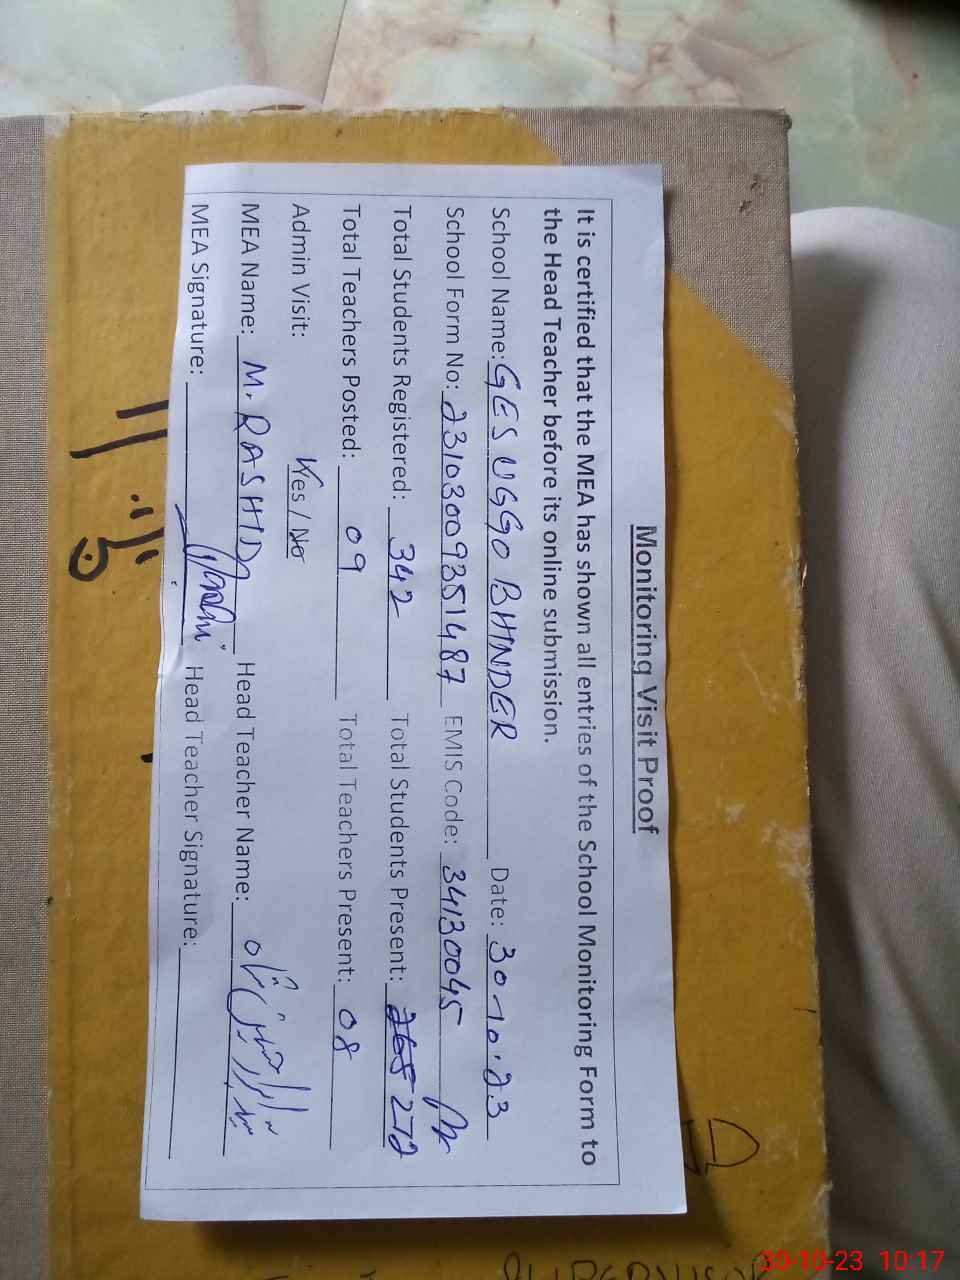 Monitoring Visit Proof
It is certified that the MEA has shown all entries of the School Monitoring Form to
the Head Teacher before its online submission.
School Name: GES UGGO BHINDER Date: 30-10-23
School Form No: 23103009351487 EMIS Code: 34130045
Total Students Registered: 342 Total Students Present: 268 272
Total Teachers Posted: 09 Total Teachers Present: 08
Admin Visit: Yes / No
MEA Name: M. RASHID Head Teacher Name:
MEA Signature: Head Teacher Signature:
30-10-23 10:17